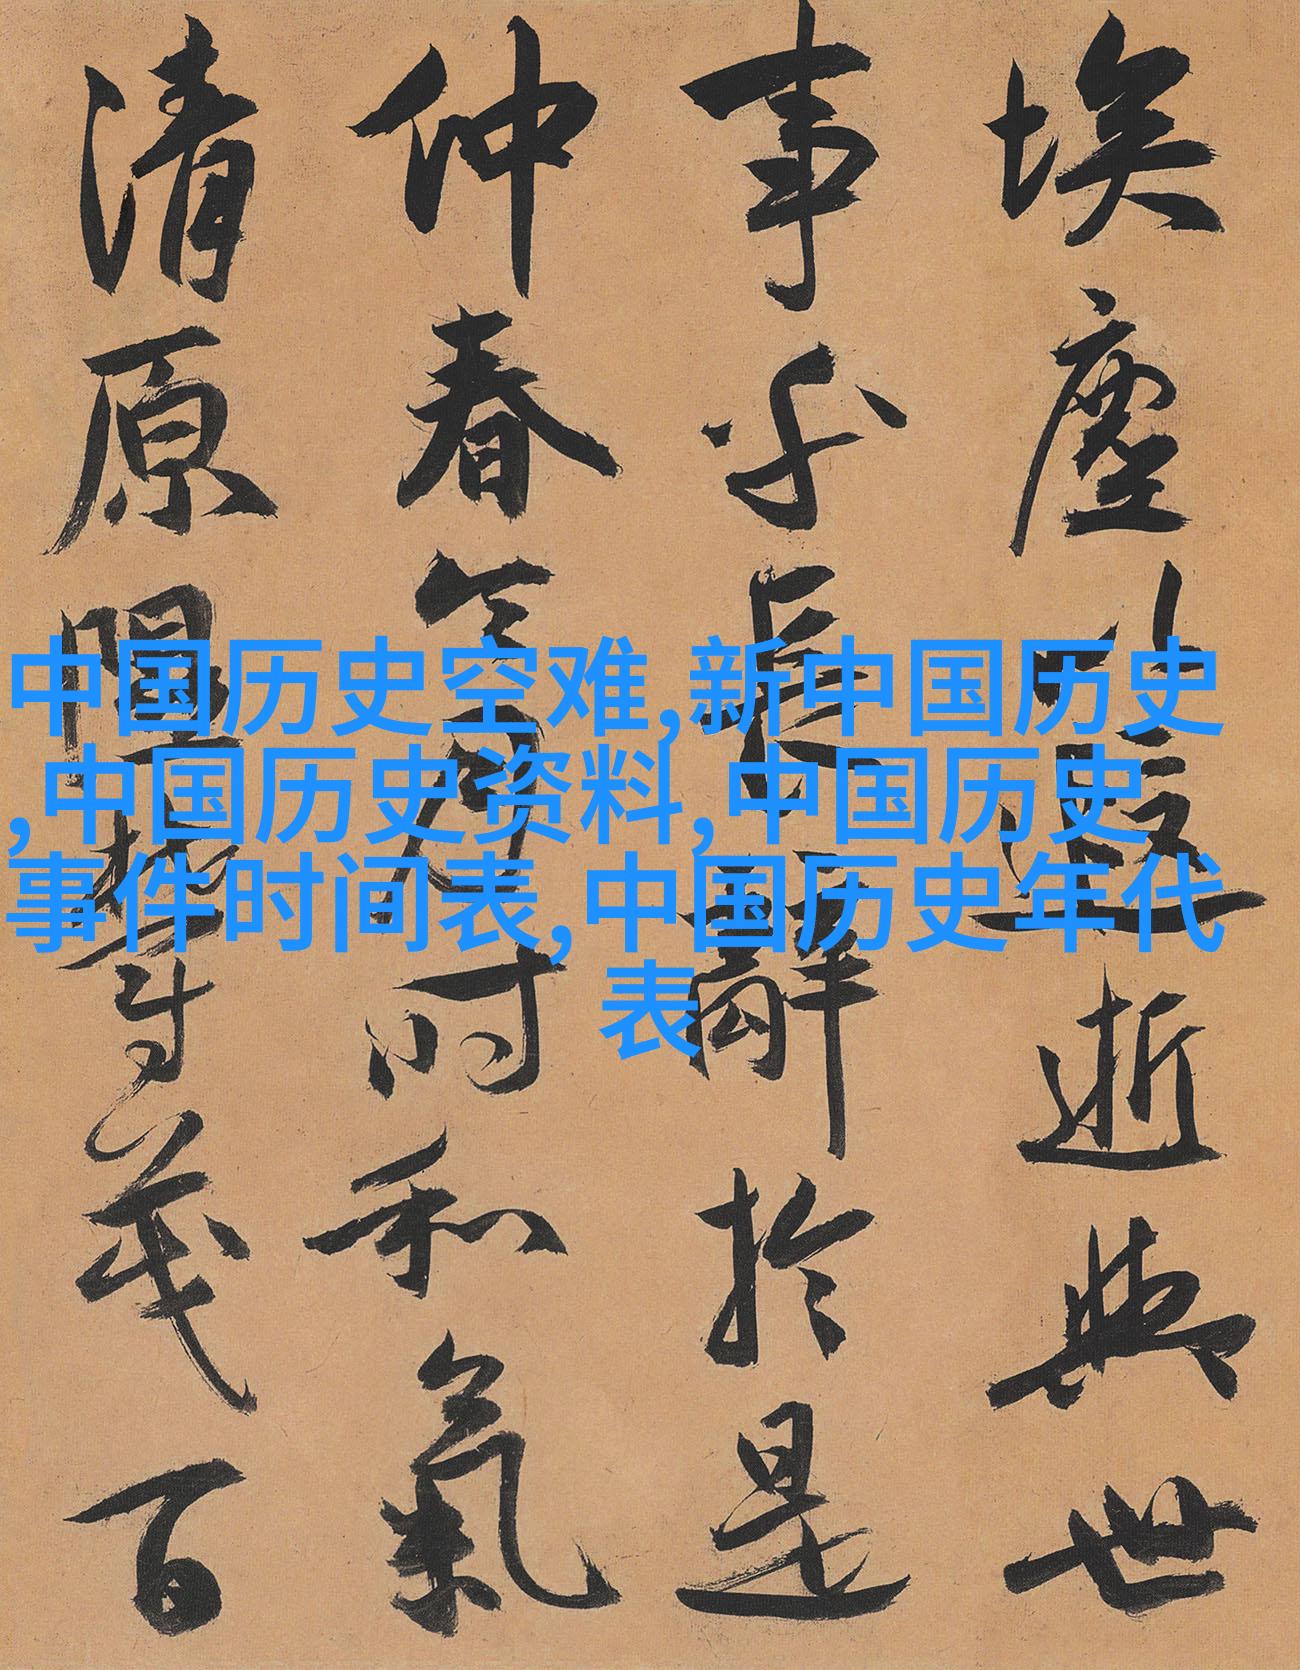 中国历史空难,新中国历史
,中国历史资料,中国历史
事件时间表,中国历史年代
表
埃塵以遐逝與世
事乎長辭於是
仲春令月時和氣
清原隰鬱茂百